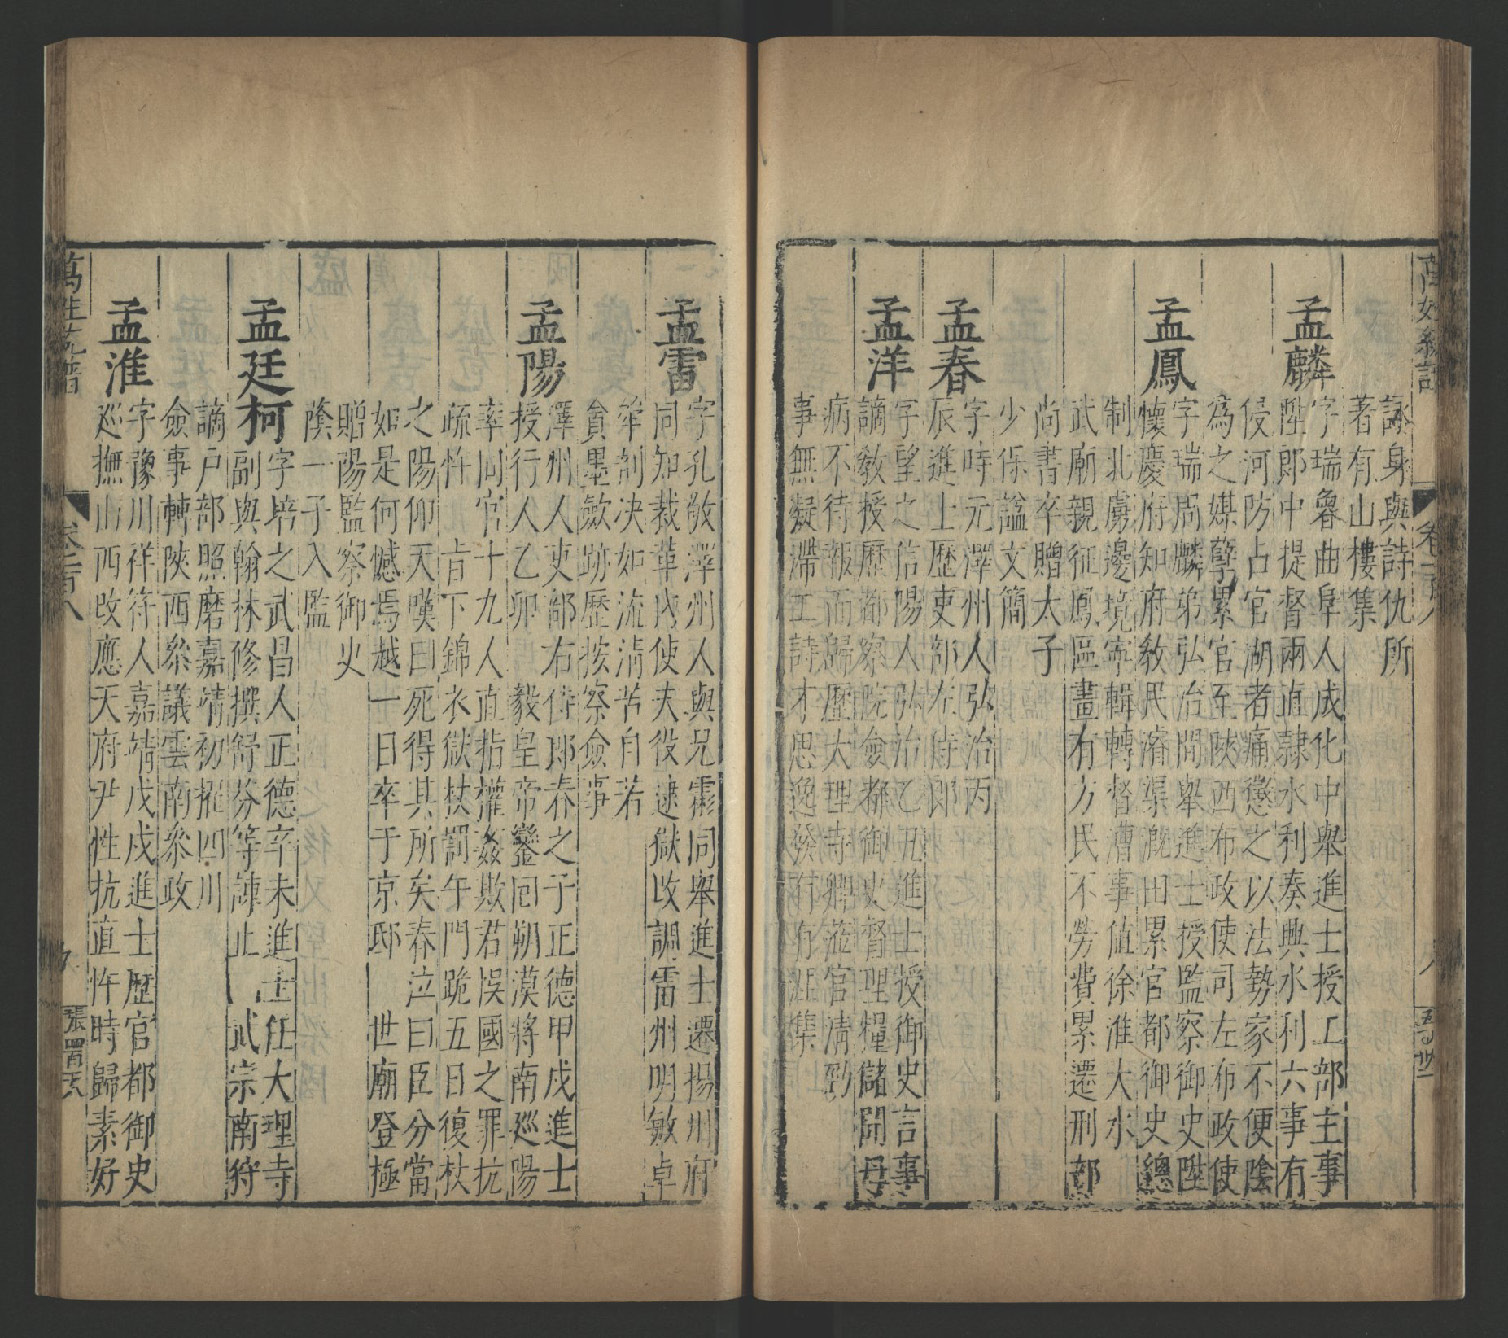 萬姓統譜
卷一百八
詠身與詩仇所
著有山樓集
孟麟
字瑞魯曲阜人成化中舉進士授工部主事
陞郎中提督兩直隸水利奏興水利六事有
侵河防占官湖者痛懲之以法勢家不便陰
為之媒孽累官至陝西布政使司左布政使
孟鳳
字瑞周麟弟弘治間舉進士授監察御史陞
懷慶府知府教民濬渠溉田累官都御史總
制北虜邊境寧輯轉督漕事值徐淮大水
武廟親征鳳區畫有方民不勞費累遷刑部
尚書卒贈太子
少保諡文簡
孟春
字時元澤州人弘治丙
辰進士歷吏部左侍郎
孟洋
字望之信陽人弘治乙丑進士授御史言事
謫教授歷都察院僉都御史督理糧儲聞母
病不待報而歸歷大理寺卿蒞官清勁
事無凝滯工詩才思逸發有有涯集
孟雷
字孔敬澤州人與兄霦同舉進士遷揚州府
同知裁革內使夫役逮獄改調雷州明敏卓
犖剖決如流清苦自若
貪墨斂跡歷按察僉事
孟陽
澤州人吏部右侍郎春之子正德甲戌進士
授行人乙卯 毅皇帝鑾回朔漠將南廵陽
率同官十九人直指權姦欺君誤國之罪抗
疏忤 旨下錦衣獄杖罰午門跪五日復杖
之陽仰天嘆曰死得其所矣春泣曰臣分當
如是何憾焉越一日卒于京邸 世廟登極
贈陽監察御史
蔭一子入監
孟廷柯
字培之武昌人正德辛未進士任大理寺
副與翰林修撰舒芬等諫止 武宗南狩
謫戶部照磨嘉靖初擢四川
僉事轉陝西叅議雲南叅政
孟淮
字豫川祥符人嘉靖戊戌進士歷官都御史
巡撫山西改應天府尹性抗直忤時歸素好
萬姓統譜
卷一百八